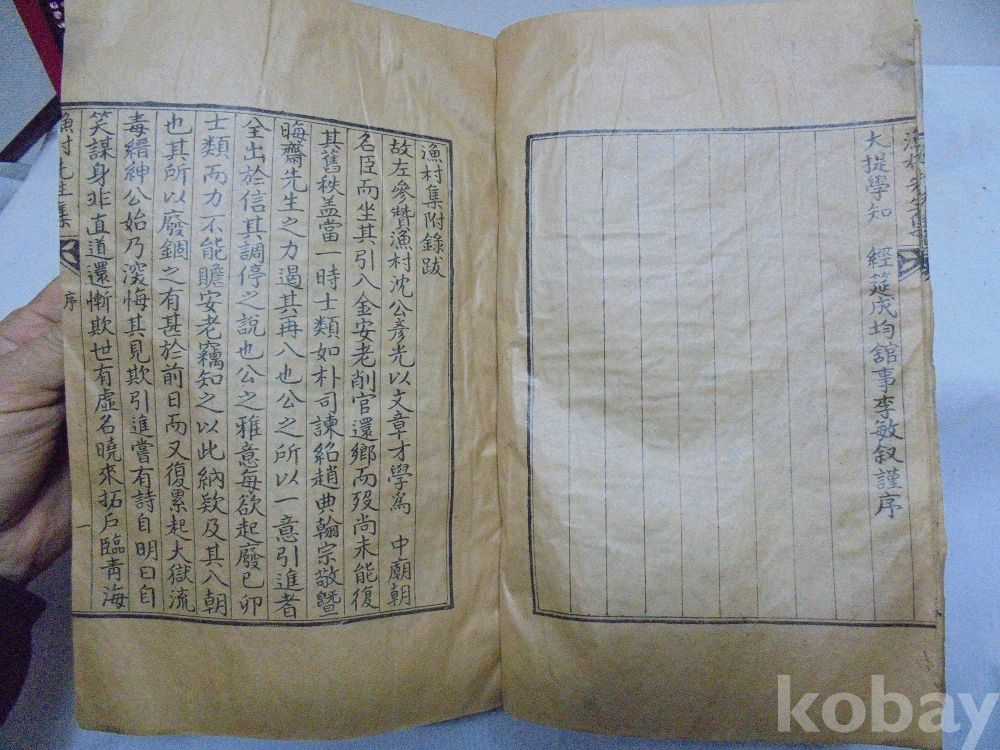 大提學知 經筵成均館事李敏叙謹序
漁村集附錄跋
故左參贊漁村沈公彦光以文章才學爲 中廟朝
名臣而坐其引入金安老削官還鄉而歿尚未能復
其舊秩盖當一時士類如朴司諫紹趙典翰宗敬曁
晦齋先生之力遏其再入也公之所以一意引進者
全出於信其調停之說也公之雅意每欲起廢己卯
士類而力不能贍安老竊知之以此納欵及其入朝
也其所以廢錮之有甚於前日而又復累起大獄流
毒縉紳公始乃深悔其見欺引進嘗有詩自明曰自
笑謀身非直道還慚欺世有虛名曉來拓戶臨靑海
漁村先生集
序
一
kobay